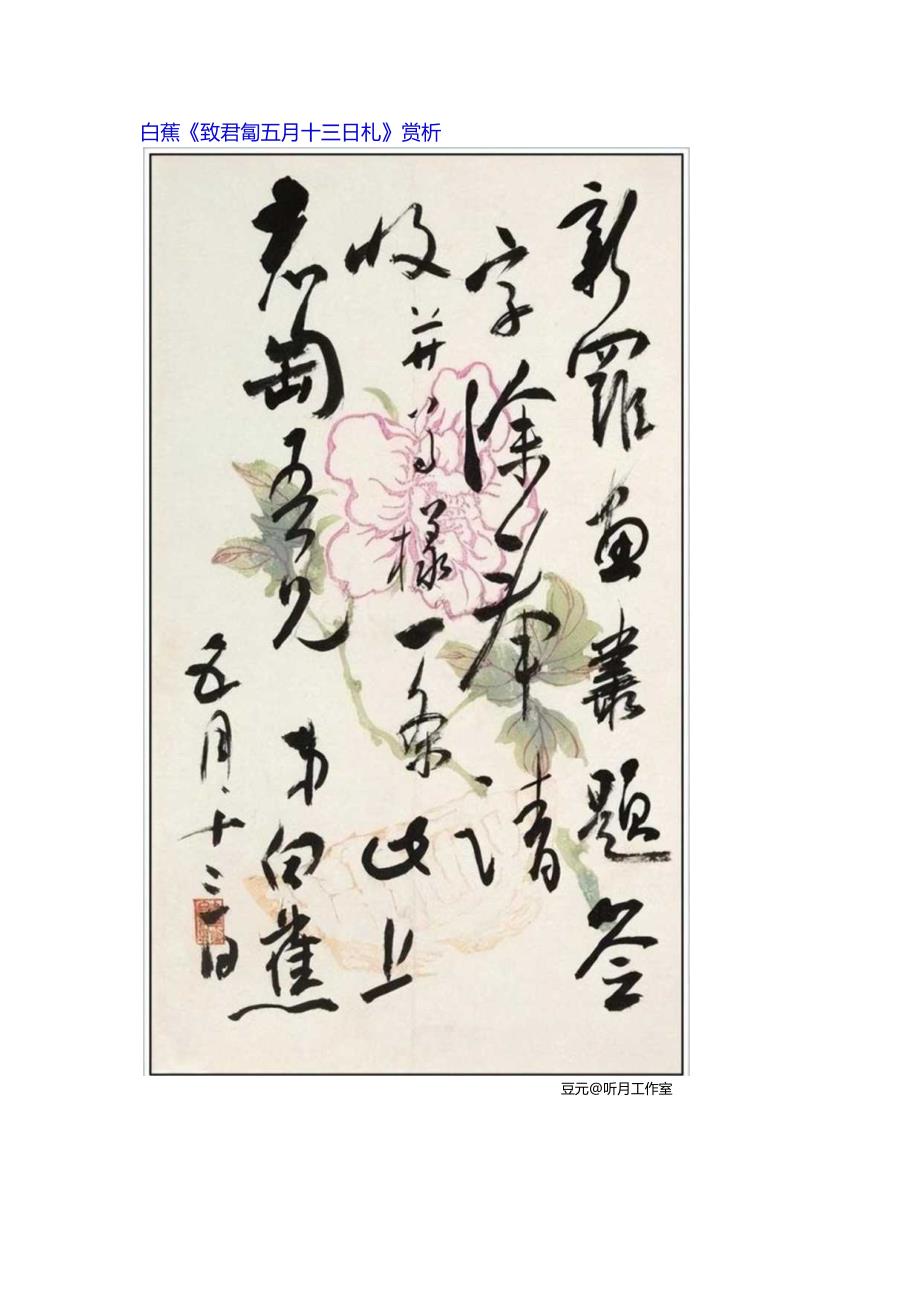 白蕉《致君匋五月十三日札》赏析
新羅画叢題签
字涂奉請
收并樣一条此上
君匋吾兄
弟白蕉
五月十三日
豆元@听月工作室